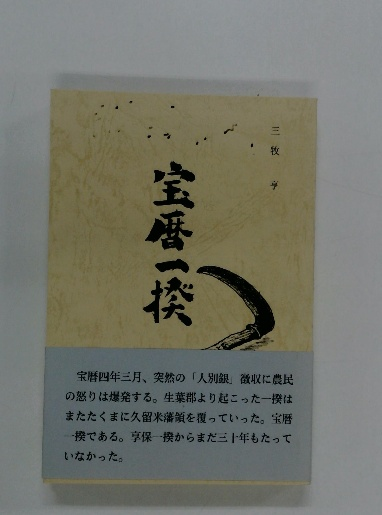 三牧 亨
宝暦一揆
宝暦四年三月、突然の「人別銀」徴収に農民
の怒りは爆発する。生葉郡より起こった一揆は
またたくまに久留米藩領を覆っていった。宝暦
一揆である。享保一揆からまだ三十年もたって
いなかった。